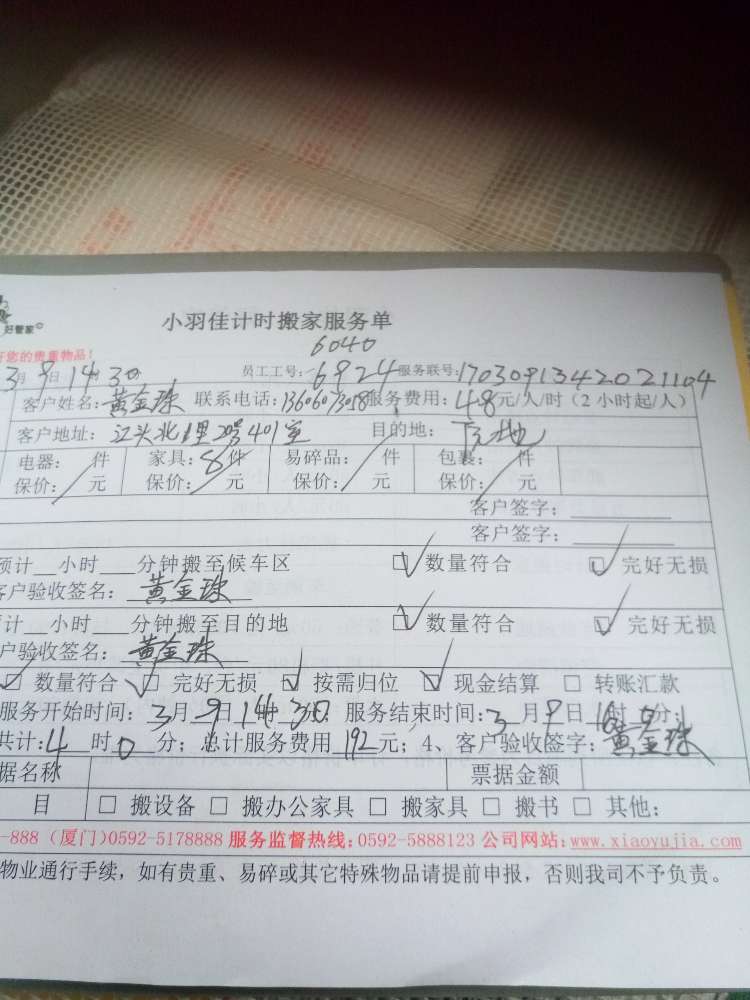 好管家
小羽佳计时搬家服务单
您的贵重物品!
6040
3月9日14 30 员工工号:6924 服务联号:1703091342021104
客户姓名:黄金珠 联系电话:13606073018 服务费用:48元/人/时(2小时起/人)
客户地址:江头北里 401室 目的地:
电器: 件 家具:8件 易碎品: 件 包裹: 件
保价: 元 保价: 元 保价: 元 保价: 元
客户签字:
客户签字:
预计 小时 分钟搬至候车区 ☑ 数量符合 ☑ 完好无损
客户验收签名:黄金珠
计 小时 分钟搬至目的地 ☑ 数量符合 ☑ 完好无损
户验收签名:黄金珠
☑ 数量符合 ☑ 完好无损 ☑ 按需归位 ☑ 现金结算 □ 转账汇款
服务开始时间:3月9日14时30 服务结束时间:3月9日16时 分;
共计:4时0分;总计服务费用192元;4、客户验收签字:黄金珠
据名称 票据金额
目 □ 搬设备 □ 搬办公家具 □ 搬家具 □ 搬书 □ 其他:
-888(厦门)0592-5178888 服务监督热线:0592-5888123 公司网站:www.xiaoyujia.com
物业通行手续,如有贵重、易碎或其它特殊物品请提前申报,否则我司不予负责。